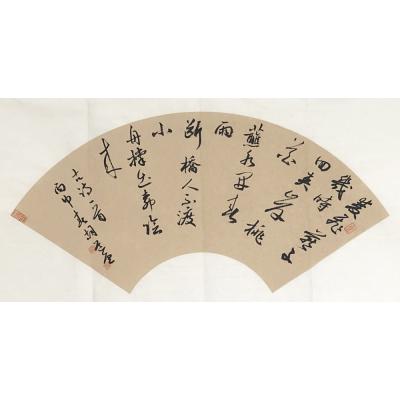 雙飛燕子
幾
回時夾岸桃
花
蘸水開春
雨
斷橋人不渡
小
舟撐出柳陰
來
古詩一首
丙申春胡